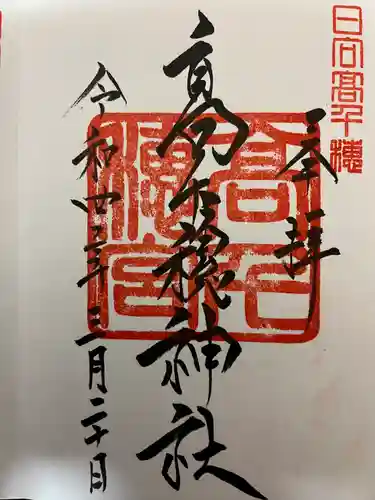 日向高千穂
奉拝
高千穂神社
令和四年三月二十日
高千穂宮